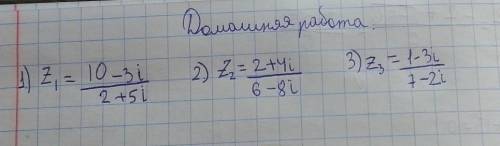 Домашняя работа.
1) Z₁ = (10-3i)/(2+5i) 2) Z₂ = (2+4i)/(6-8i) 3) Z₃ = (1-3i)/(7-2i)